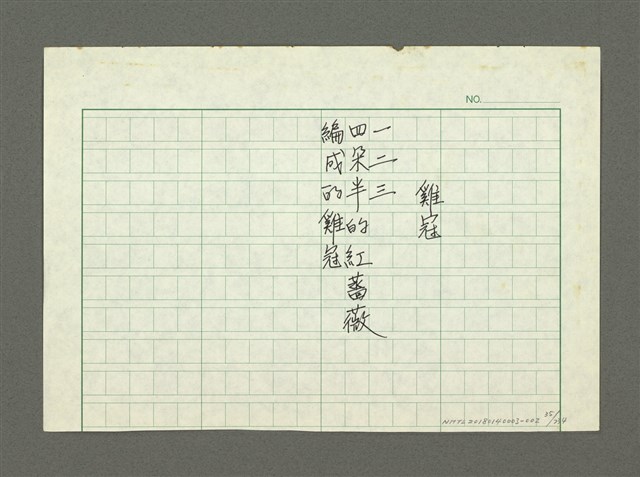 NO.
雞冠
一二三
四朵半的紅薔薇
編成的雞冠
NMTL20180140003-002
35/